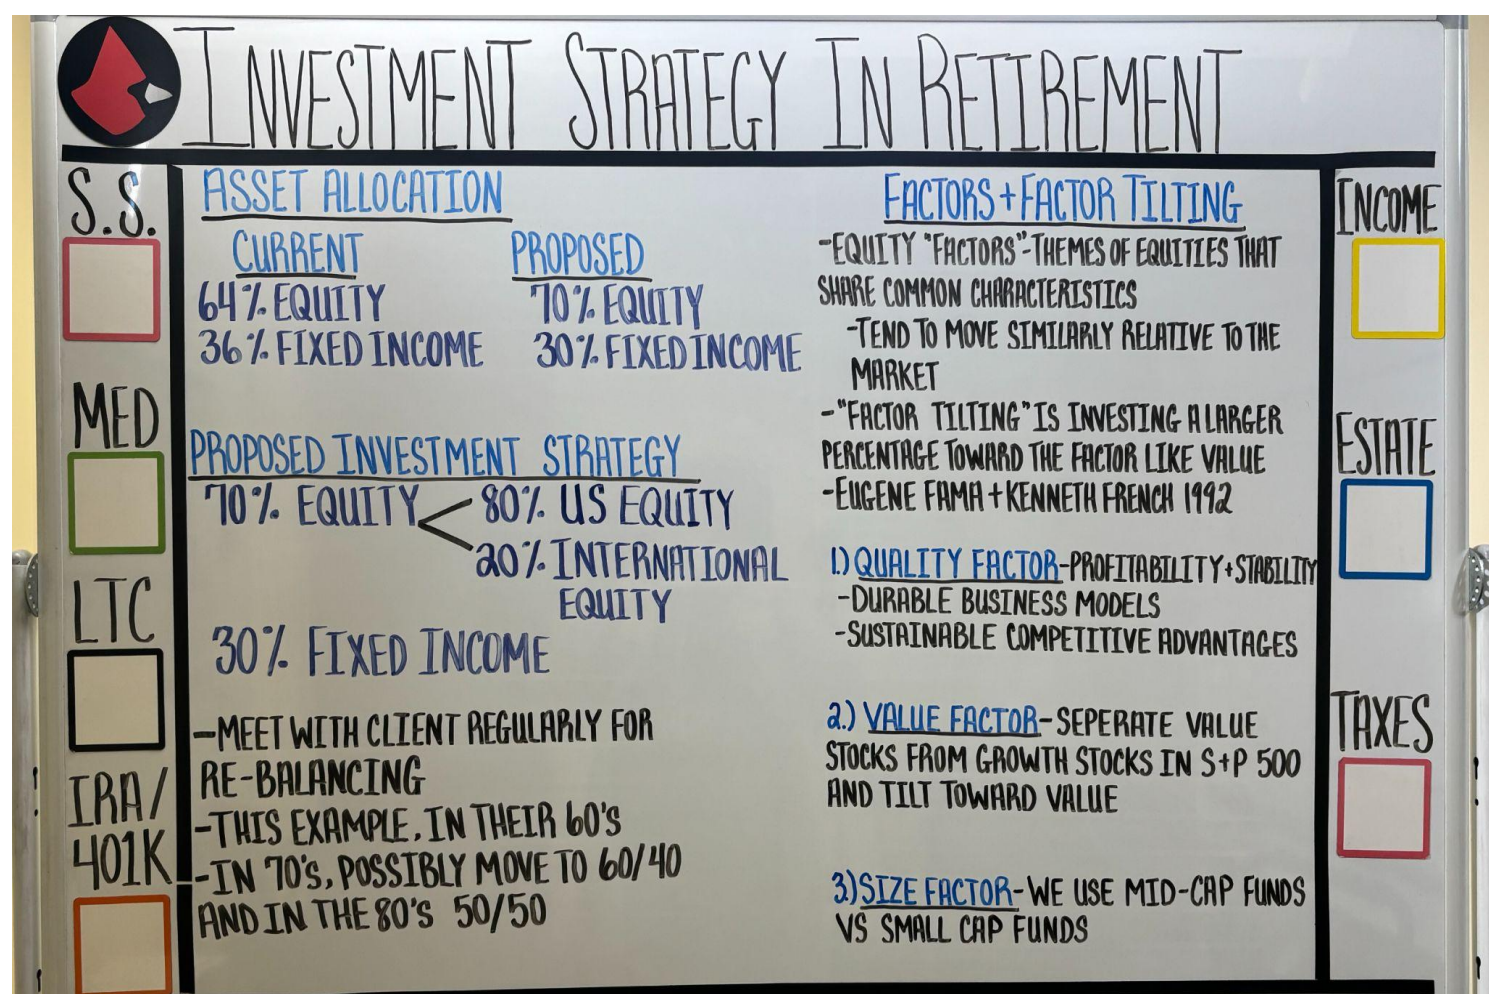 INVESTMENT STRATEGY IN RETIREMENT
S.S.
MED
LTC
IRA/
401K
ASSET ALLOCATION
CURRENT
64% EQUITY
36% FIXED INCOME
PROPOSED
70% EQUITY
30% FIXED INCOME
PROPOSED INVESTMENT STRATEGY
70% EQUITY
80% US EQUITY
20% INTERNATIONAL
EQUITY
30% FIXED INCOME
-MEET WITH CLIENT REGULARLY FOR
RE-BALANCING
-THIS EXAMPLE, IN THEIR 60'S
-IN 70'S, POSSIBLY MOVE TO 60/40
AND IN THE 80'S 50/50
FACTORS+FACTOR TILTING
-EQUITY "FACTORS"-THEMES OF EQUITIES THAT
SHARE COMMON CHARACTERISTICS
-TEND TO MOVE SIMILARLY RELATIVE TO THE
MARKET
-"FACTOR TILTING" IS INVESTING A LARGER
PERCENTAGE TOWARD THE FACTOR LIKE VALUE
-EUGENE FAMA+KENNETH FRENCH 1992
1.) QUALITY FACTOR-PROFITABILITY+STABILITY
-DURABLE BUSINESS MODELS
-SUSTAINABLE COMPETITIVE ADVANTAGES
2.) VALUE FACTOR-SEPERATE VALUE
STOCKS FROM GROWTH STOCKS IN S+P 500
AND TILT TOWARD VALUE
3.) SIZE FACTOR-WE USE MID-CAP FUNDS
VS SMALL CAP FUNDS
INCOME
ESTATE
TAXES